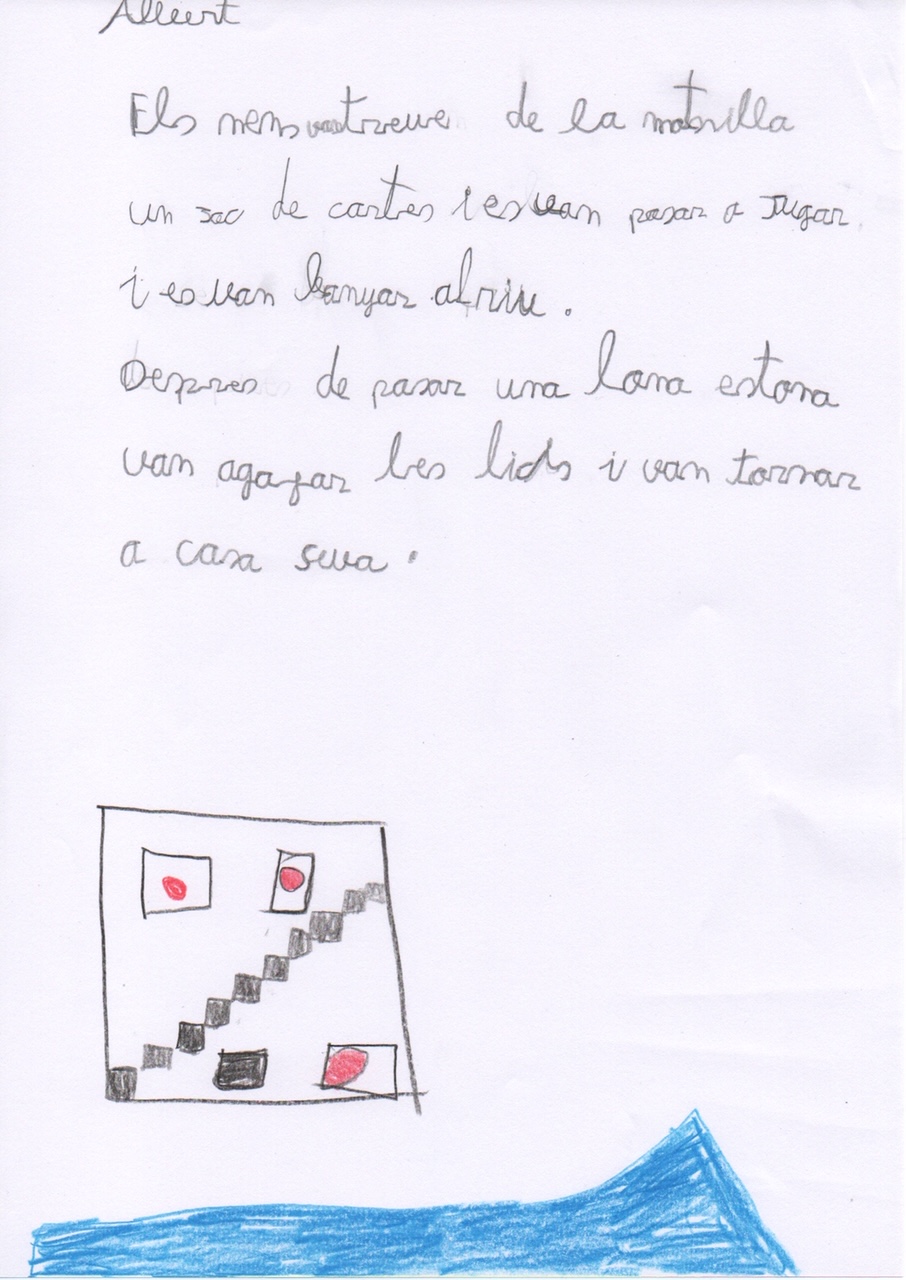 Albert
Els nens van treure de la motxilla
un sac de cartes i es van pasar a Jugar.
i es van banyar al riu.
Despres de pasar una lana estona
van agafar les lids i van tornar
a casa seva.